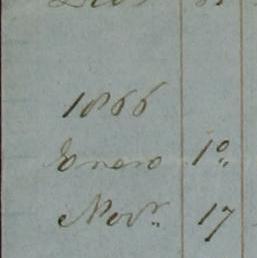 1866
Enero 1º
Novʳ 17